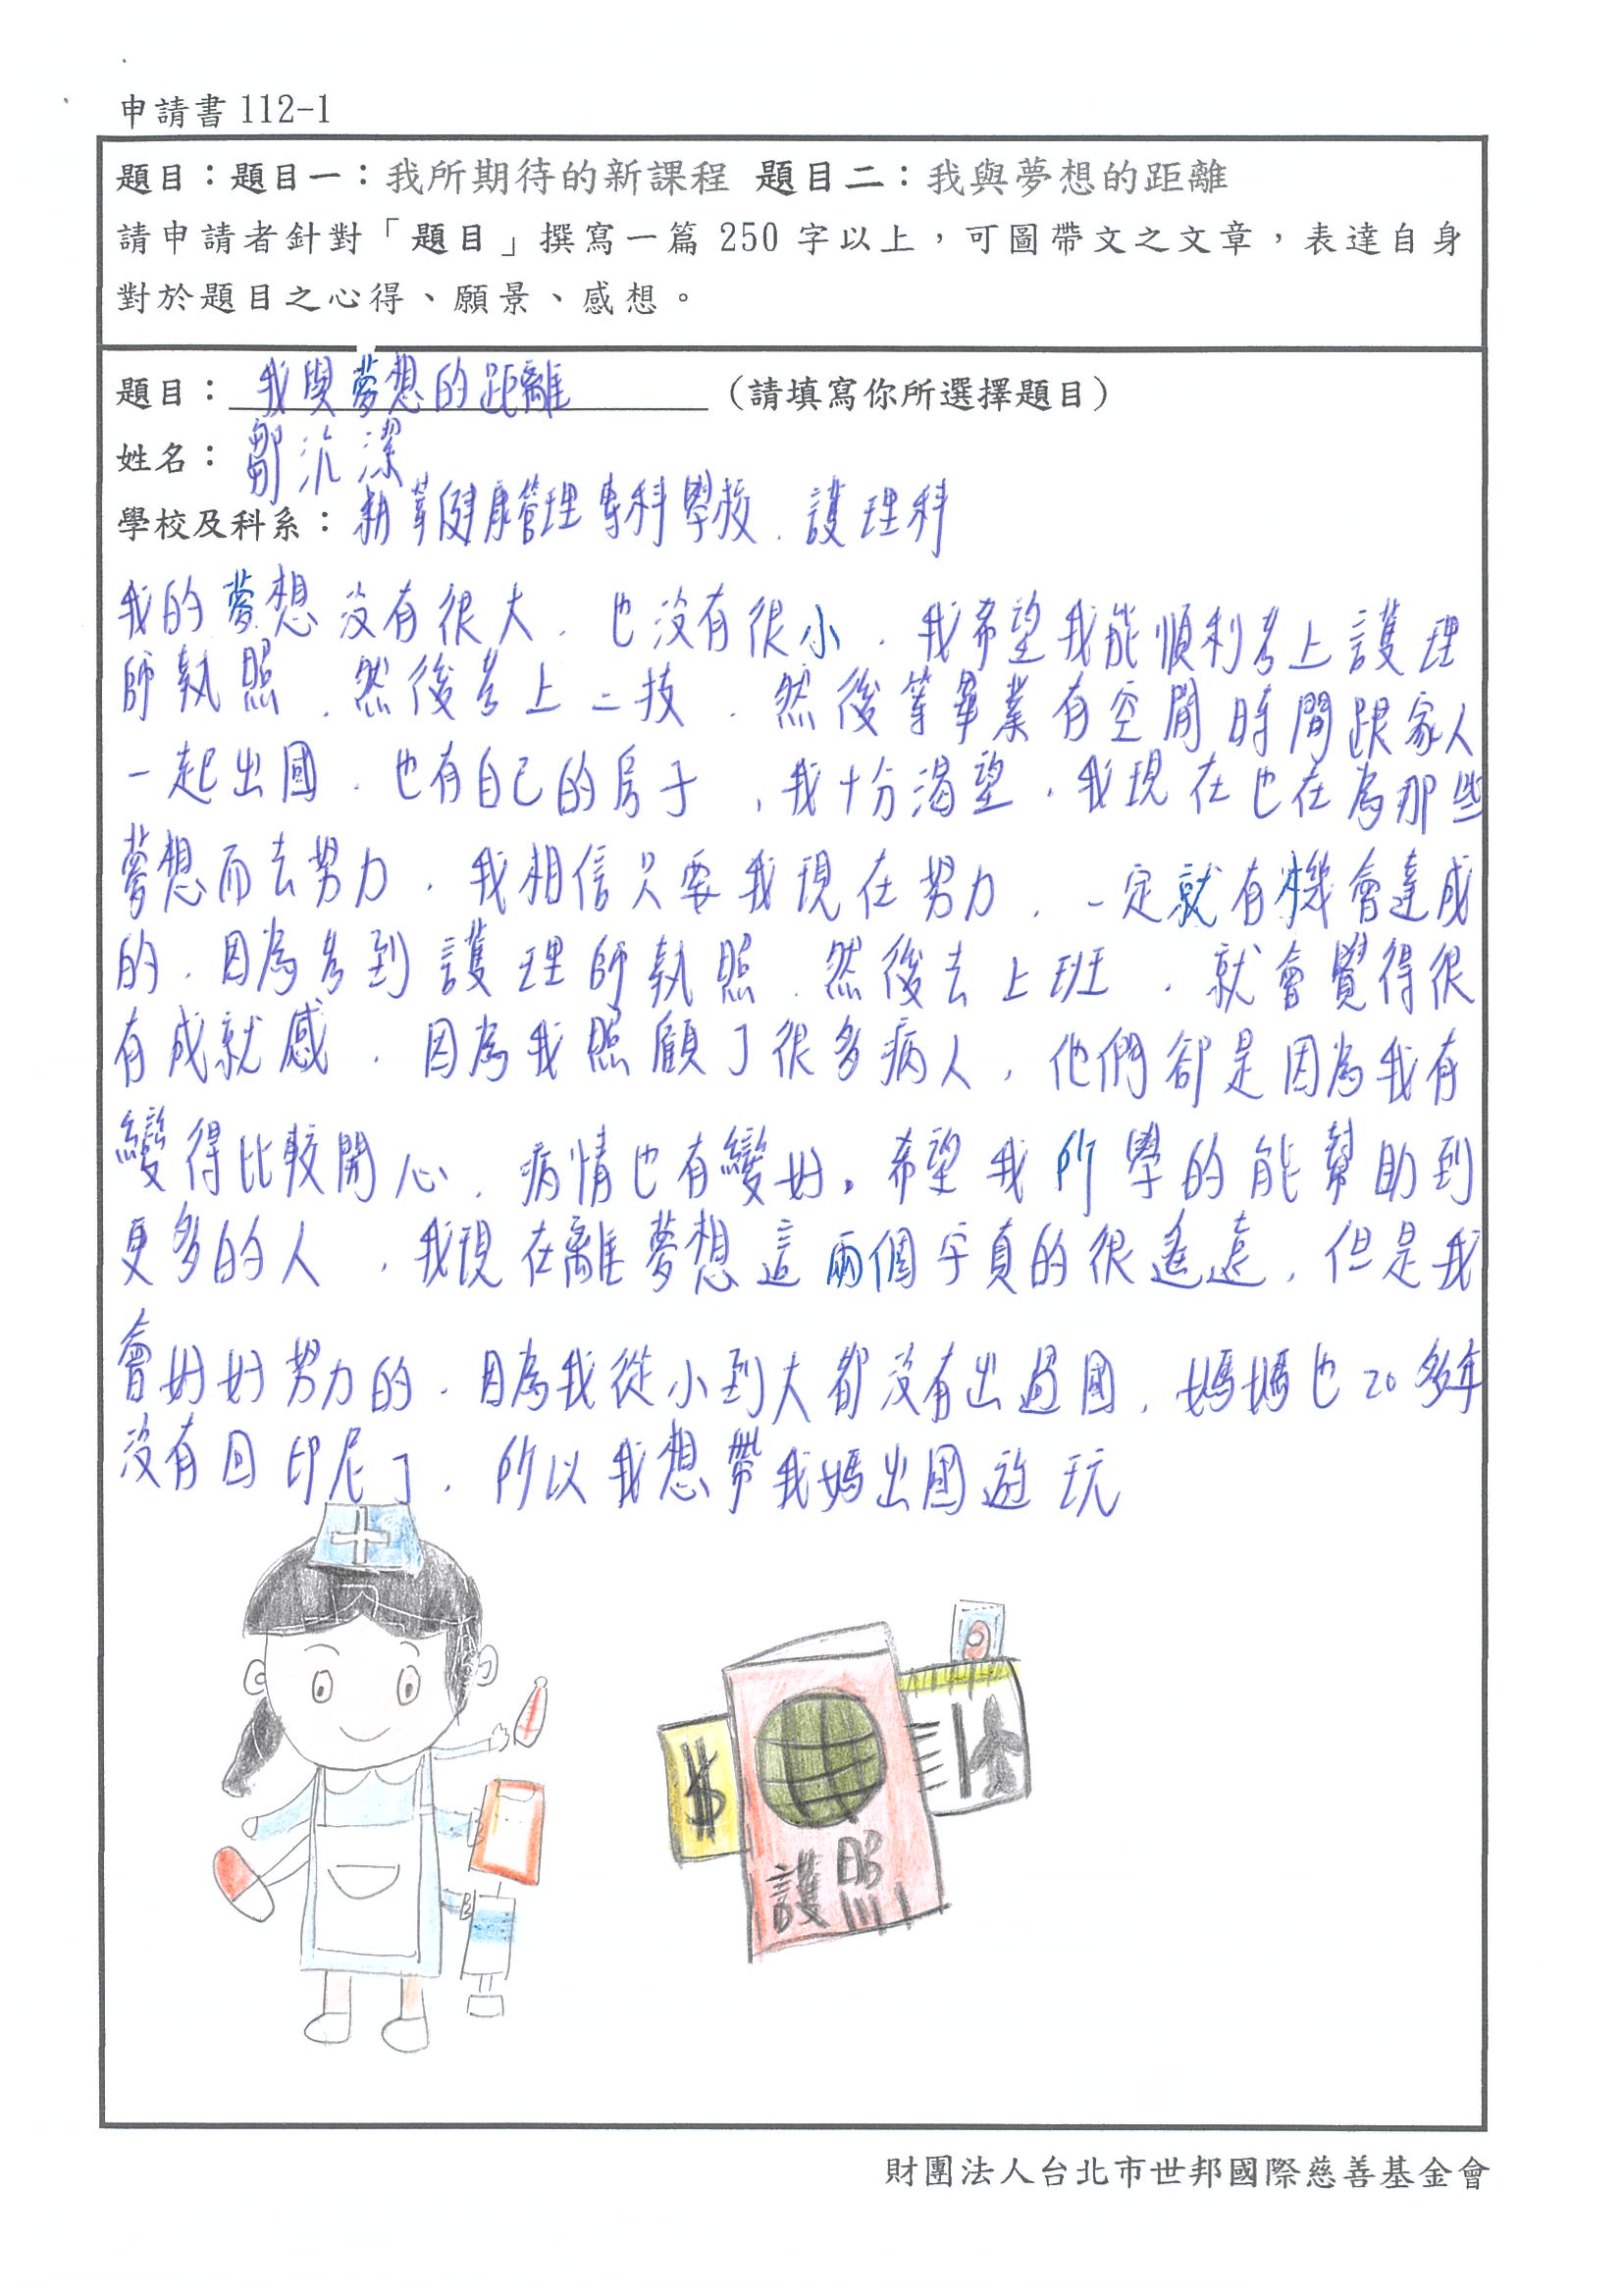 申請書 112-1
題目：題目一：我所期待的新課程 題目二：我與夢想的距離
請申請者針對「題目」撰寫一篇 250 字以上，可圖帶文之文章，表達自身
對於題目之心得、願景、感想。
題目：我與夢想的距離（請填寫你所選擇題目）
姓名：鄒沇潔
學校及科系：新華健康管理專科學校．護理科
我的夢想沒有很大．也沒有很小．我希望我能順利考上護理
師執照．然後考上二技．然後等畢業有空閒時間跟家人
一起出國．也有自己的房子，我十分渴望，我現在也在為那些
夢想而去努力．我相信只要我現在努力．一定就有機會達成
的．因為考到護理師執照．然後去上班，就會覺得很
有成就感．因為我照顧了很多病人，他們卻是因為我有
變得比較開心．病情也有變好。希望我所學的能幫助到
更多的人，我現在離夢想這兩個字真的很遙遠，但是我
會好好努力的．因為我從小到大都沒有出過國，媽媽也20多年
沒有回印尼了．所以我想帶我媽出國遊玩
$
護照
財團法人台北市世邦國際慈善基金會